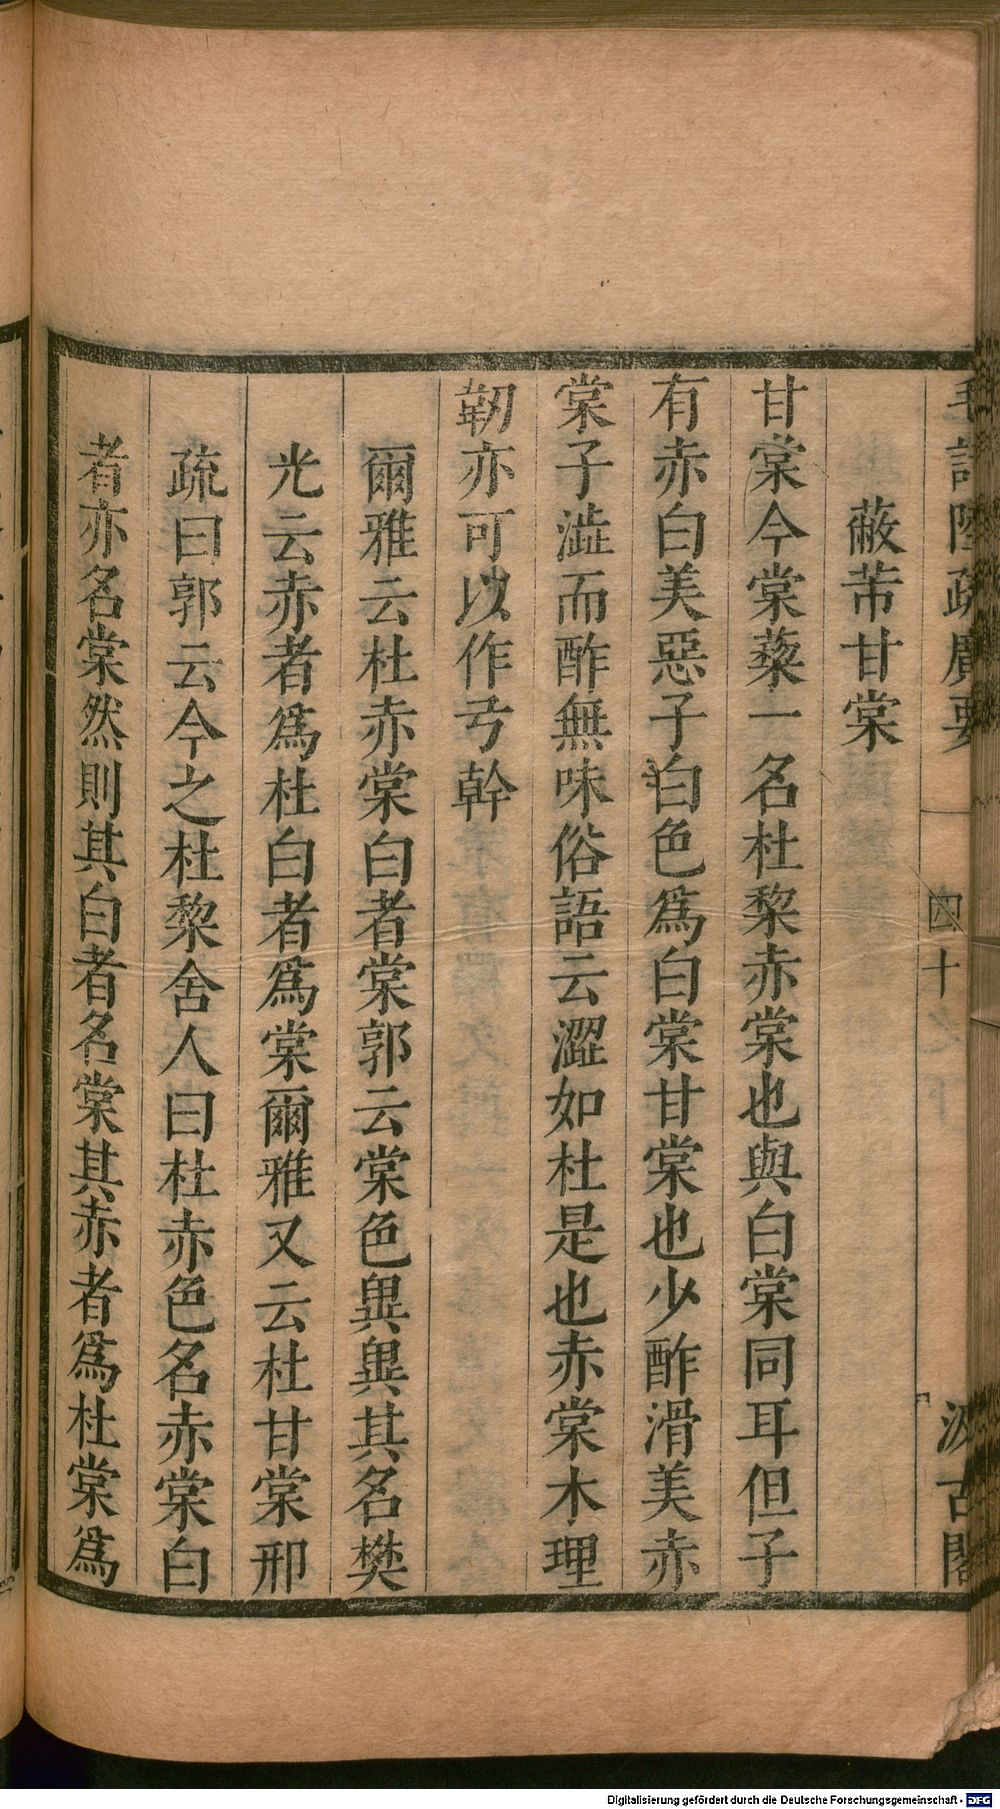 毛詩陸疏廣要
四十
汲古閣
蔽芾甘棠
甘棠今棠蔾一名杜黎赤棠也與白棠同耳但子
有赤白美惡子白色爲白棠甘棠也少酢滑美赤
棠子澁而酢無味俗語云澀如杜是也赤棠木理
韌亦可以作弓幹
爾雅云杜赤棠白者棠郭云棠色異異其名樊
光云赤者爲杜白者爲棠爾雅又云杜甘棠邢
疏曰郭云今之杜黎舍人曰杜赤色名赤棠白
者亦名棠然則其白者名棠其赤者爲杜棠爲
Digitalisierung gefördert durch die Deutsche Forschungsgemeinschaft - DFG